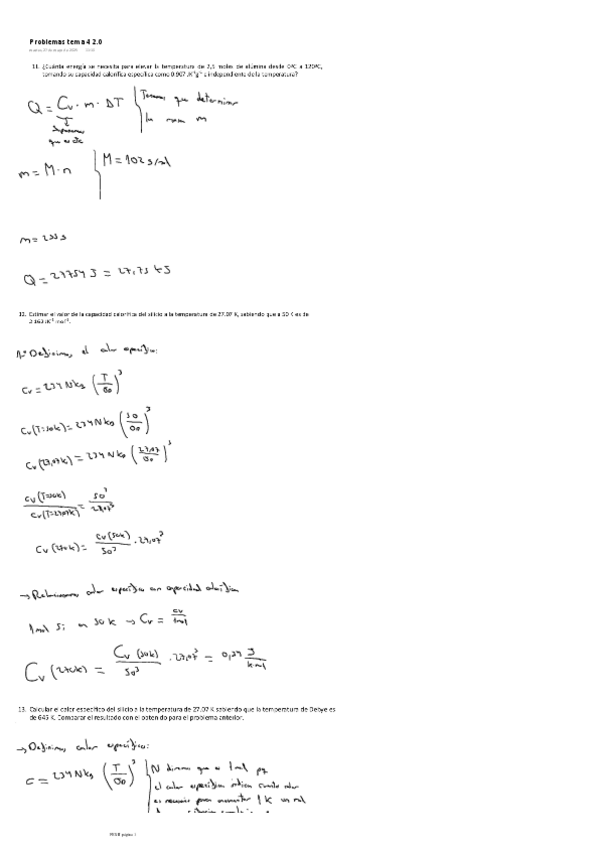 Problemas tema 4 2.0
11. ¿Cuánta energía se necesita para elevar la temperatura de 2,5 moles de alúmina desde 0ºC a 120ºC,
tomando su capacidad calorífica específica como 0.907 JK⁻¹g⁻¹ e independiente de la temperatura?
Q = Cv · m · ΔT
Tenemos que determinar
la masa m
m = M · n
M = 102 g/mol
m = 255 g
Q = 27754 J = 27,75 kJ
12. Estimar el valor de la capacidad calorífica del silicio a la temperatura de 27.07 K, sabiendo que a 50 K es de
→ Definimos el calor específico:
Cv = 234 N kB (T/θD)³
Cv(T=50K) = 234 N kB (50/θD)³
Cv(27,07K) = 234 N kB (27,07/θD)³
Cv(T=50K)/Cv(T=27,07K) = 50³/27,07³
Cv(27,07K) = Cv(50K)/50³ · 27,07³
→ Relacionamos calor específico con capacidad calorífica
1 mol Si en 50 K → Cv = cv/1mol
Cv(27,07K) = Cv(50K)/50³ · 27,07³ =
13. Calcular el calor específico del silicio a la temperatura de 27.07 K sabiendo que la temperatura de Debye es
de 645 K. Comparar el resultado con el obtenido para el problema anterior.
→ Definimos calor específico:
c = 234 N kB (T/θD)³
N diremos que es 1 mol pq
el calor específico indica cuanto calor
es necesario para aumentar 1 K un mol